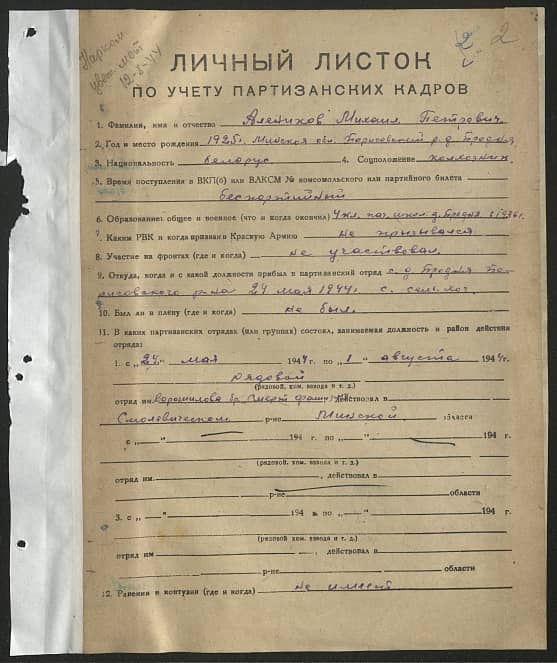 Нарком
цвет. мет
12-8-44
2 2
ЛИЧНЫЙ ЛИСТОК
ПО УЧЕТУ ПАРТИЗАНСКИХ КАДРОВ
1. Фамилия, имя и отчество Алейников Михаил Петрович
2. Год и место рождения 1925г. Минская обл. Борисовский р. д. Бродня
3. Национальность белорус 4. Соцположение колхозник
5. Время поступления в ВКП(б) или ВЛКСМ № комсомольского или партийного билета
беспартийный
6. Образование: общее и военное (что и когда окончил) 4 кл. нач. школ. д. Бродня в 1936г.
7. Каким РВК и когда призван в Красную Армию не призывался
8. Участие на фронтах (где и когда) не участвовал
9. Откуда, когда и с какой должности прибыл в партизанский отряд с д. Бродня Бо-
рисовского р-на 24 мая 1944г. с. сельхоз.
10. Был ли в плену (где и когда) не был.
11. В каких партизанских отрядах (или группах) состоял, занимаемая должность и район действия
отряда:
1. с „24" мая 1944 г. по „1" августа 1944 г.
рядовой
(рядовой, ком. взвода и т. д.)
отряд им. Ворошилова бр. Смерть фашизму действовал в
Смолевическом р-не Минской области
с „ " 194 г. по „ " 194 г.
(рядовой, ком. взвода и т. д.)
отряд им. , действовал в
р-не области
3. с „ " 194 г. по „ " 194 г.
(рядовой, ком. взвода и т. д.)
отряд им , действовал в
р-не области
12. Ранения и контузии (где и когда) не имеет